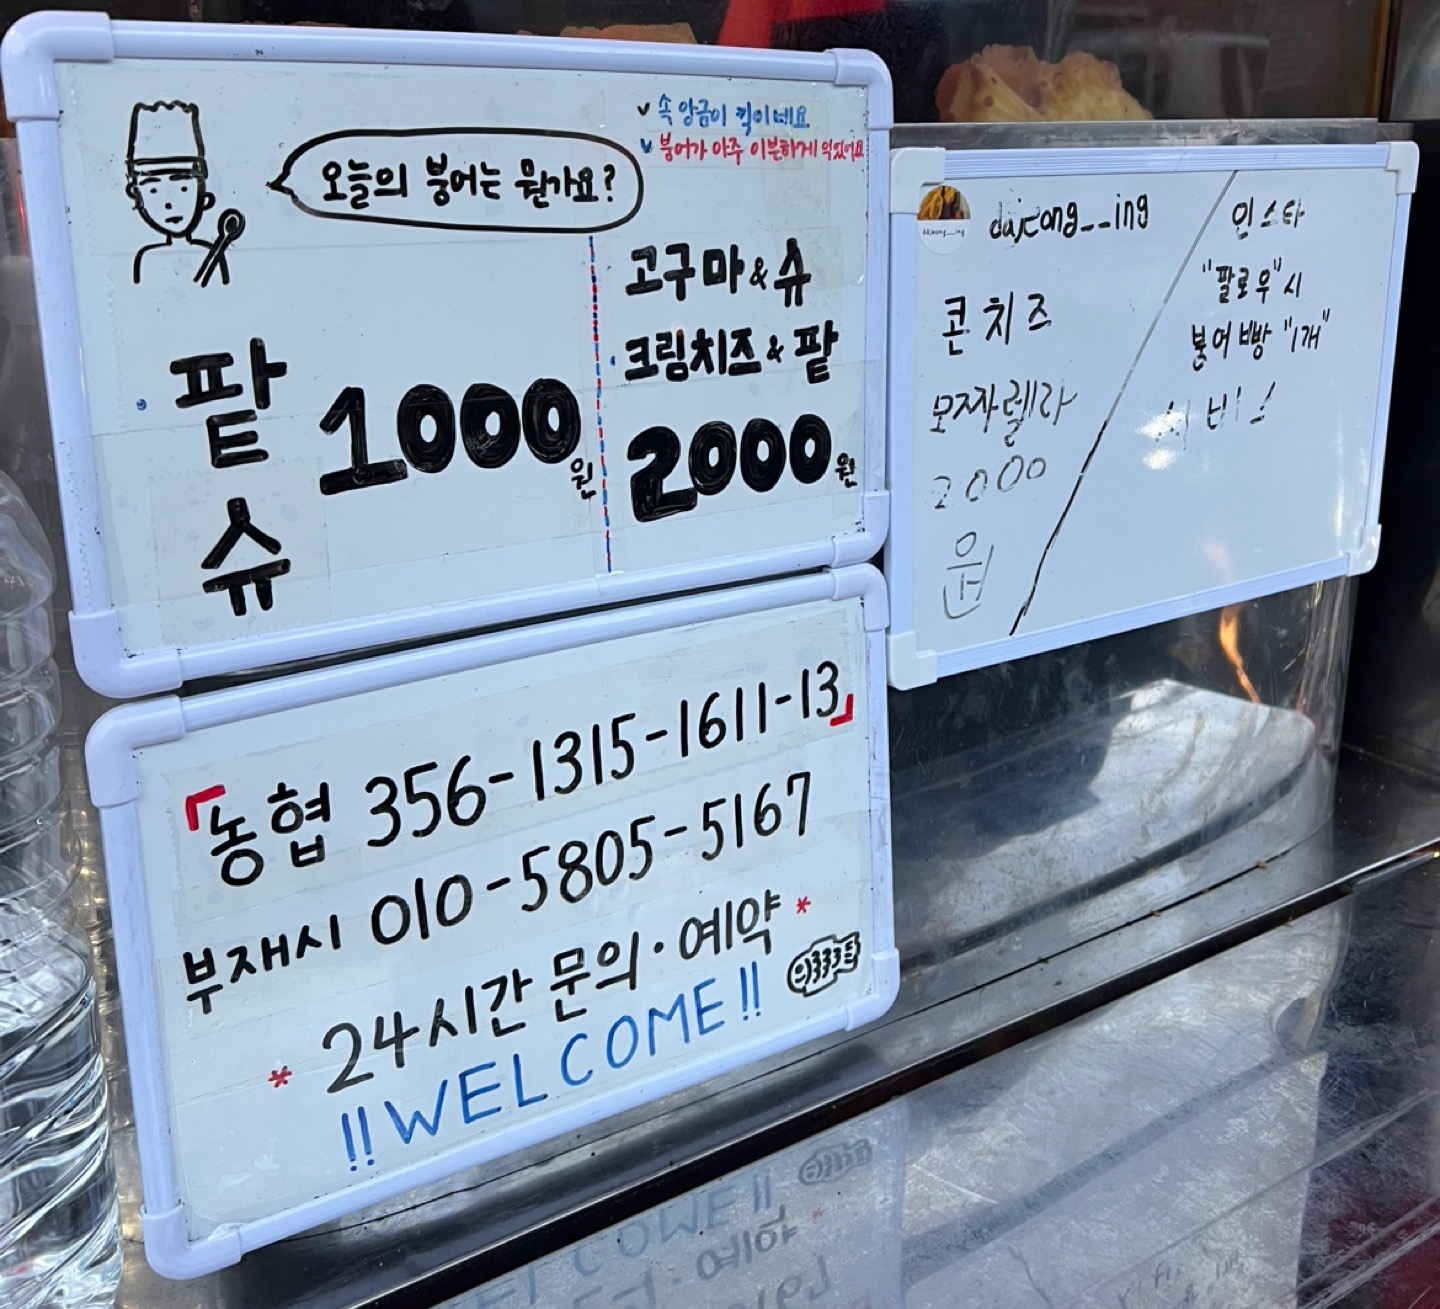 오늘의 붕어는 뭔가요?
✓ 속 앙금이 킥이네요
✓ 붕어가 아주 이븐하게 익었어요
팥
슈
1000원
고구마 & 슈
크림치즈 & 팥
2000원
dajeong__ing
콘치즈
모짜렐라
2000
원
인스타
"팔로우"시
붕어빵 "1개"
서비스
「농협 356-1315-1611-13」
부재시 010-5805-5167
* 24시간 문의·예약 *
!! WELCOME !!